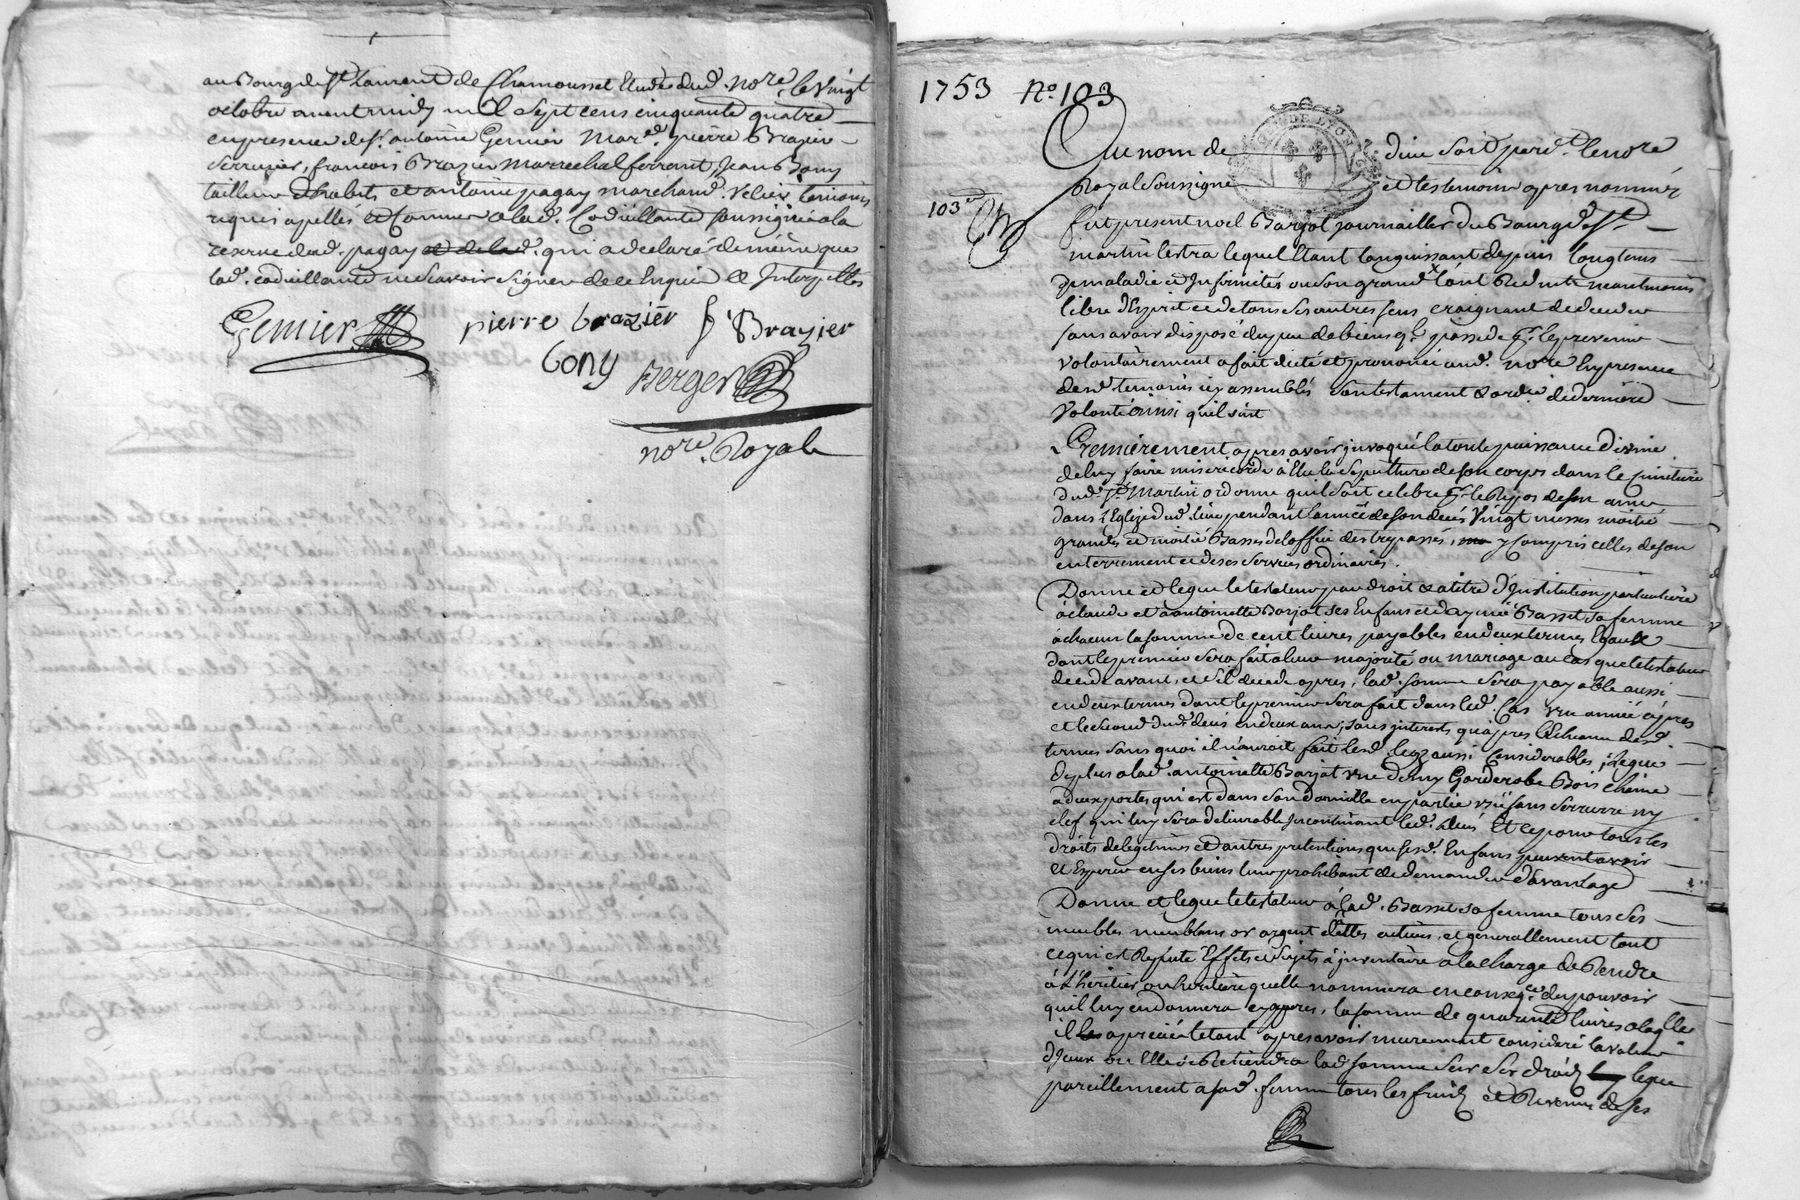 au Bourg de St. Laurent de Chamousset Etude dud. nore. le vingt
octobre avant midy mil sept cens cinquante quatre
en presence de Sr. antoine Gemier Mard. pierre Brazier
Serrurier, francois Brazier marrechal ferrant, Jean Bony
tailleur d'habits et antoine pagay marchand. temoins
requis apelles et Comme a lad. Codicillante soussignés a la
reserve dud. pagay et de lad. qui a declaré de même que
lad. codicillante ne Scavoir Signer de ce Enquis & Interpellés
Gemier pierre brazier f Brazier
bony Berger
nore. Royal
1753 No. 103
GEN DE LYON
Au nom de dieu soit pard. le nore
Royal Soussigné et les temoins apres nommés
103e
fut present noel Barjot journaillier du Bourg de St.
martin lestra lequel Etant languissant depuis longtems
de maladie et Infirmités ou son grand l'ont Reduit neantmoins
libre d'Esprit et de tous ses autres sens, craignant de deceder
sans avoir disposé du peu de biens ql. possede pr. le prevenir
volontairement a fait dicté et prononcé aud. nore En presence
desd. temoins icy assemblés son testament & ordre. de derniere
Volonté ainsi quil suit
Premièrement apres avoir invoqué la toute puissance divine
de luy faire misericorde à Elu la Sepulture de son corps dans le Cimetière
dud. St. Martin ordonne quil soit celebré pr. le Repos de son ame
dans l'Eglise dud. lieu pendant l'année de son decés Vingt messes moitié
grandes et moitié Basses de l'office des trepassés, y compris celles de son
enterrement et de ses services ordinaires.
Donne et legue le testateur par droit & a titre d'Institution particulière
à claude et antoinette Barjot ses Enfans et d'aymée Basset sa femme
à chacun la somme de cent livres payables en deux termes Egaux
dont le premier sera fait a leur majorité ou mariage au cas que le testateur
decede avant, et s'il decede apres, lad. somme sera payable aussi
en deux termes dont le premier sera fait dans led. Cas une année apres
et le second dud. decés en deux ans, sans interets qu'apres l'Echeance desd.
termes sans quoi il n'auroit fait lesd. legs aussi Considerables; legue
de plus a lad. antoinette Barjot une demy Garderobe Bois chêne
a deux portes qui est dans son domicille en partie usée sans serrure ny
clef qui luy sera delivrable Incontinant led. decés Et ce pour tous les
droits de legitimes et d'autres pretentions que sesd. Enfans peuvent avoir
et Esperer en ses biens leur prohibant de demander d'avantage
Donne et legue le testateur à lad. Basset sa femme tous ses
meubles meublans or argent dettes actives, et generallement tout
ce qui est Reputé Effets et sujets à inventaire a la charge de Rendre
à L'héritier ou heritiere quelle nommera en conseqce. du pouvoir
quil luy en donnera cy apres, la somme de quarante livres a laqlle
il a aprecié le tout apres avoir murement consideré la valeur
d'Jceux ou Elle Retiendra lad. somme sur ses droits legue
pareillement a sad. femme tous les fruits et Revenus de ses